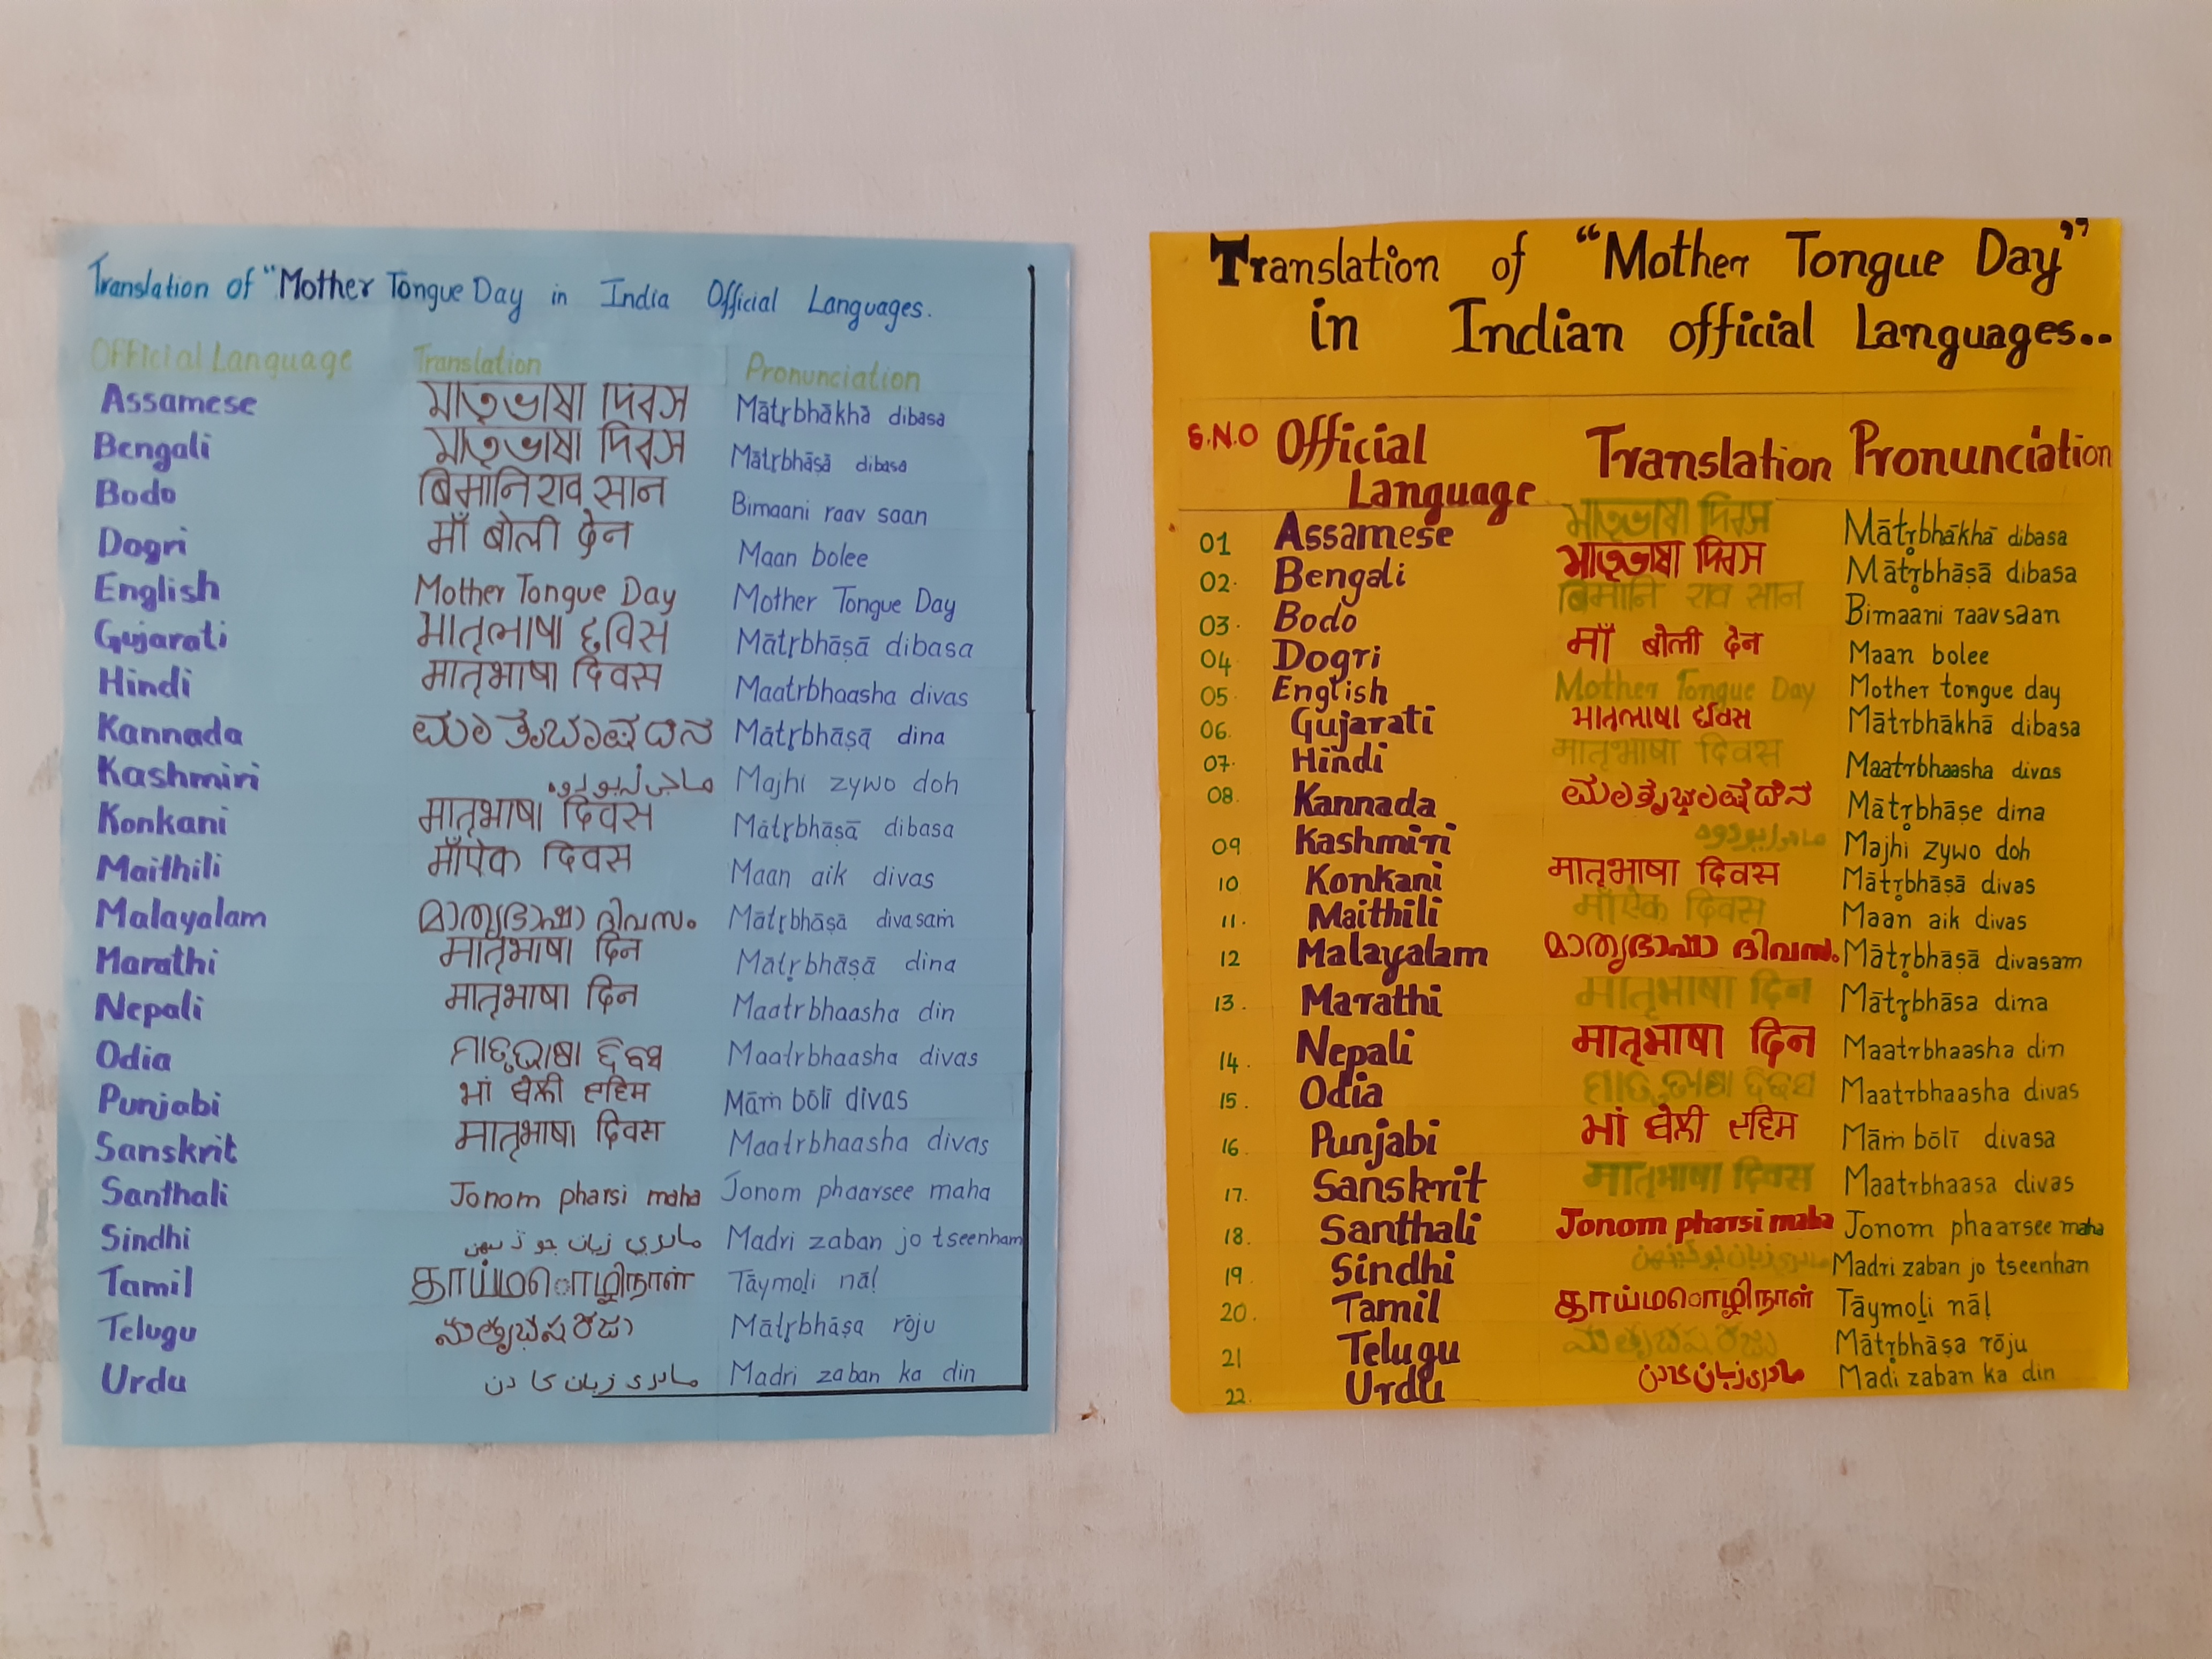 Translation of "Mother Tongue Day in India Official Languages.
Official Language Translation Pronunciation
Assamese মাতৃভাষা দিবস Mātṛbhākhā dibasa
Bengali মাতৃভাষা দিবস Mātṛbhāṣā dibasa
Bodo बिमानि राव सान Bimaani raav saan
Dogri माँ बोली देन Maan bolee
English Mother Tongue Day Mother Tongue Day
Gujarati Mātṛbhāṣā dibasa
Hindi मातृभाषा दिवस Maatrbhaasha divas
Kannada Mātṛbhāṣā dina
Kashmiri Majhi zywo doh
Konkani मातृभाषा दिवस Mātṛbhāṣā dibasa
Maithili माँऐक दिवस Maan aik divas
Malayalam മാതൃഭാഷാ ദിവസം Mātṛbhāṣā divasaṁ
Marathi मातृभाषा दिन Mātṛbhāṣā dina
Nepali मातृभाषा दिन Maatrbhaasha din
Odia Maatrbhaasha divas
Punjabi Māṁ bōlī divas
Sanskrit मातृभाषा दिवस Maatrbhaasha divas
Santhali Jonom pharsi maha Jonom phaarsee maha
Sindhi Madri zaban jo tseenham
Tamil தாய்மொழிநாள் Tāymoḻi nāḷ
Telugu Mātṛbhāṣa rōju
Urdu مادری زبان کا دن Madri zaban ka din
Translation of "Mother Tongue Day"
in Indian official Languages..
S.N.O Official Language Translation Pronunciation
01 Assamese মাতৃভাষা দিবস Mātṛbhākhā dibasa
02. Bengali মাতৃভাষা দিবস Mātṛbhāṣā dibasa
03. Bodo बिमानि राव सान Bimaani raavsaan
04. Dogri माँ बोली देन Maan bolee
05. English Mother Tongue Day Mother tongue day
06. Gujarati Mātrbhākhā dibasa
07. Hindi मातृभाषा दिवस Maatrbhaasha divas
08. Kannada Mātṛbhāṣe dina
09 Kashmiri Majhi zywo doh
10 Konkani मातृभाषा दिवस Mātṛbhāṣā divas
11. Maithili माँऐक दिवस Maan aik divas
12 Malayalam മാതൃഭാഷാ ദിവസം. Mātṛbhāṣā divasam
13. Marathi मातृभाषा दिन Mātṛbhāsa dina
14. Nepali मातृभाषा दिन Maatrbhaasha din
15. Odia Maatrbhaasha divas
16. Punjabi Māṁ bōlī divasa
17. Sanskrit मातृभाषा दिवस Maatrbhaasa divas
18. Santhali Jonom pharsi maha Jonom phaarsee maha
19 Sindhi Madri zaban jo tseenhan
20. Tamil தாய்மொழிநாள் Tāymoḻi nāḷ
21 Telugu Mātṛbhāṣa rōju
22. Urdu مادری زبان کا دن Madi zaban ka din